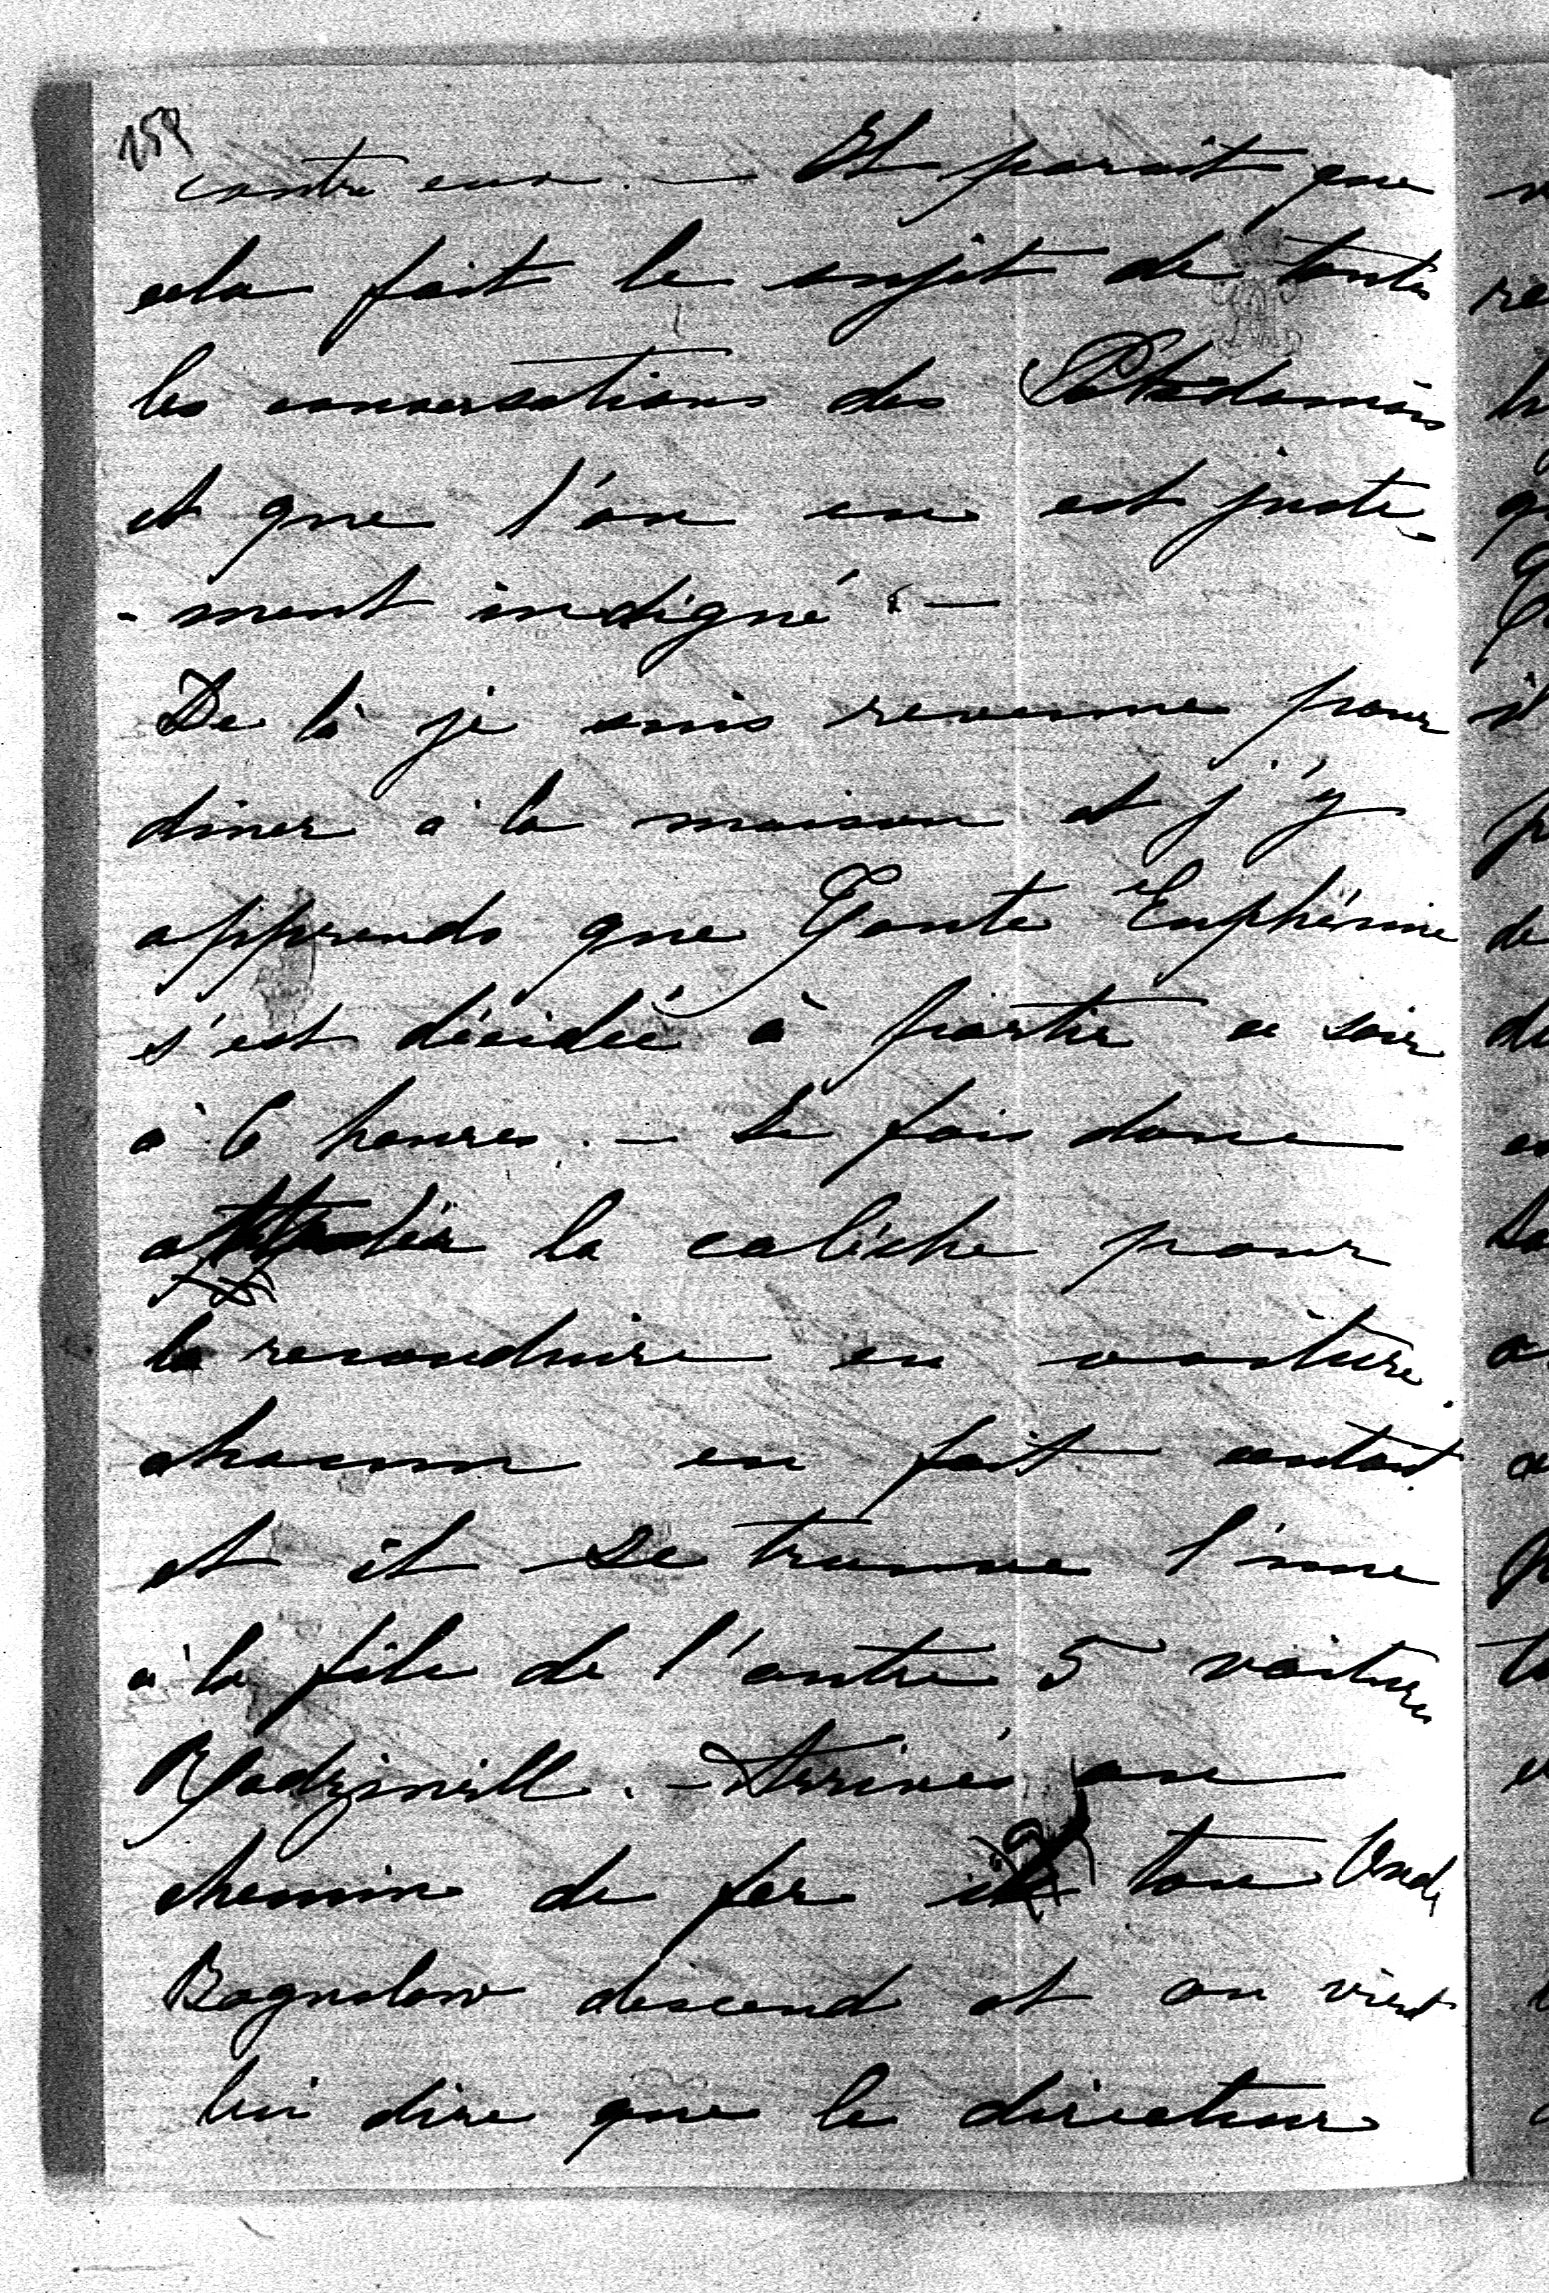 159
contre eux. — Il paraît que
cela fait le sujet de toutes
les conversations des Potsdamois
et que l'on en est juste-
-ment indigné. —
De là je suis revenue pour
diner à la maison et j'y
apprends que Tante Euphémie
s'est décidée à partir ce soir
à 6 heures. — Je fais donc
atteler la calèche pour
la reconduire en voiture.
chacun en fait autant
et il se trouve l'une
à la file de l'autre 5 voitures
Radziwill. — Arrivés au
chemin de fer ton Oncle
Boguslaw descend et on vient
lui dire que le directeur